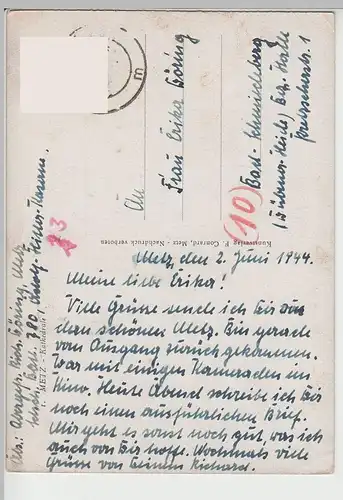 An
Frau Erika Göring
Bad-Schmiedeberg
(Dübener-Heide) Bez. Halle
str. 1
(10)
Kunstverlag P. Connard, Metz - Nachdruck verboten
METZ
33
Abs: Richard Göring, Metz
Metz, den 2. Juni 1944.
Meine liebe Erika!
Viele Grüsse sende ich Dir aus
dem schönen Metz. Bin gerade
vom Ausgang zurückgekommen.
War mit einigen Kameraden im
Kino. Heute Abend schreibe ich Dir
noch einen ausführlichen Brief.
Mir geht es sonst noch gut, was ich
auch von Dir hoffe. Nochmals viele
Grüsse von Deinem Richard.